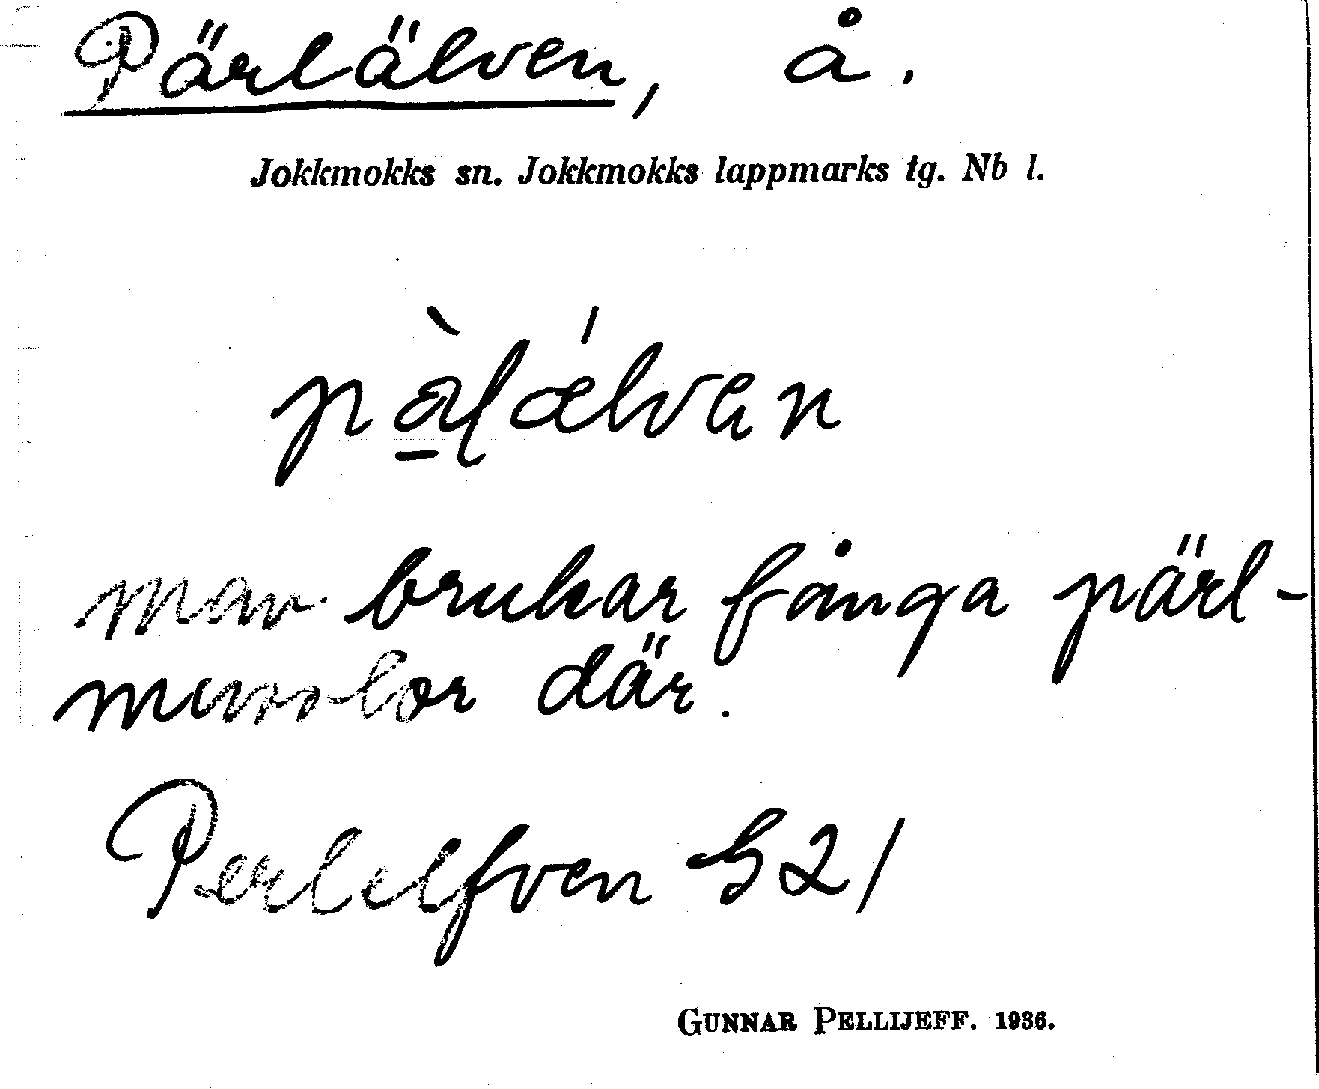 Pärlälven, å.
Jokkmokks sn. Jokkmokks lappmarks tg. Nb l.
man brukar fånga pärl-
musslor där.
Perlelfven
GUNNAR PELLIJEFF. 1936.